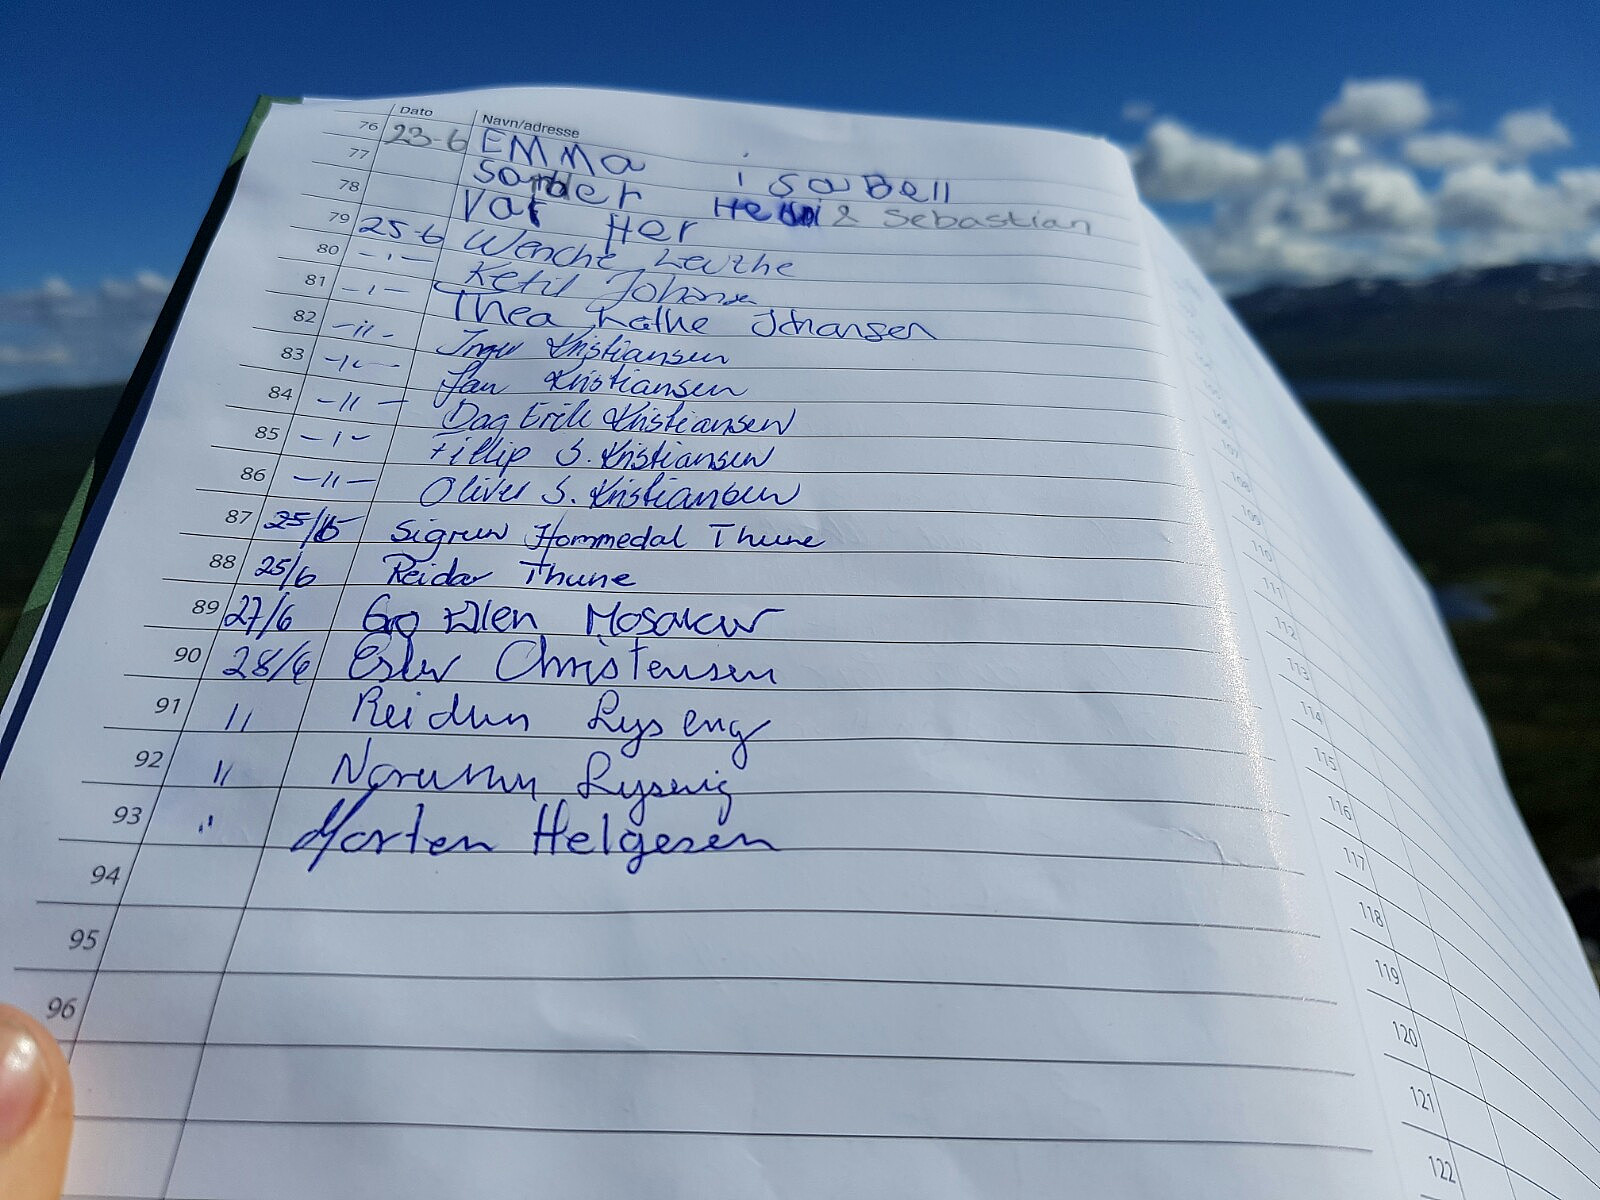 Dato Navn/adresse
76 23-6 EMMA isaBell
77 sander Heidi & Sebastian
78 Var Her
79 25-6 Wenche
80 -"- Ketil
81 -"- Thea Kathe Johansen
82 -"- Inger Kristiansen
83 -"- Jan Kristiansen
84 -"- Dag Erik Kristiansen
85 -"- Fillip S. Kristiansen
86 -"- Oliver S. Kristiansen
87 Sigrun Hommedal Thune
88 25/6 Reidar Thune
89 27/6 Ellen
90 28/6 Christensen
91 " Reidun Lyseng
92 " Lyseng
93 " Morten Helgesen
94
95
96
107
108
109
110
111
112
113
114
115
116
117
118
119
120
121
122